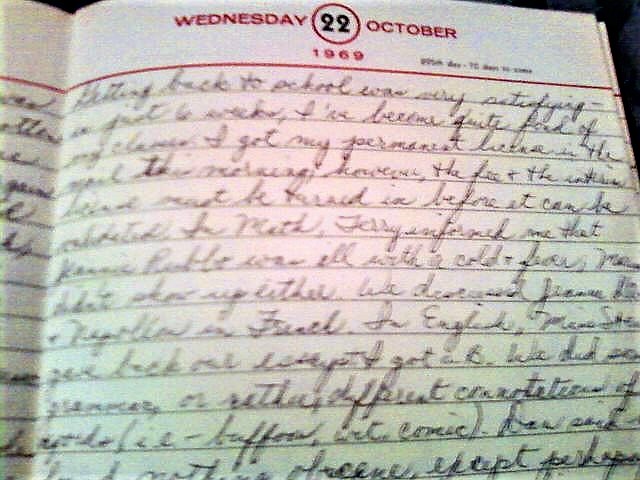 WEDNESDAY 22 OCTOBER
1969
295th day - 70 days to come
Getting back to school was very satisfying -
in just 6 weeks, I've become quite fond of
my classes. I got my permanent license in the
mail this morning, however, the fee + the interim
license must be turned in before it can be
validated. In Math, Terry informed me that
was ill with a cold + fever,
didn't show up either. We discussed France
+ Napoleon in French. In English, Miss
gave back our essays + I got a B. We did
grammar, or rather, different connotations of
words (i.e - buffoon, wit, comic). Dan said
nothing obscene, except perhaps